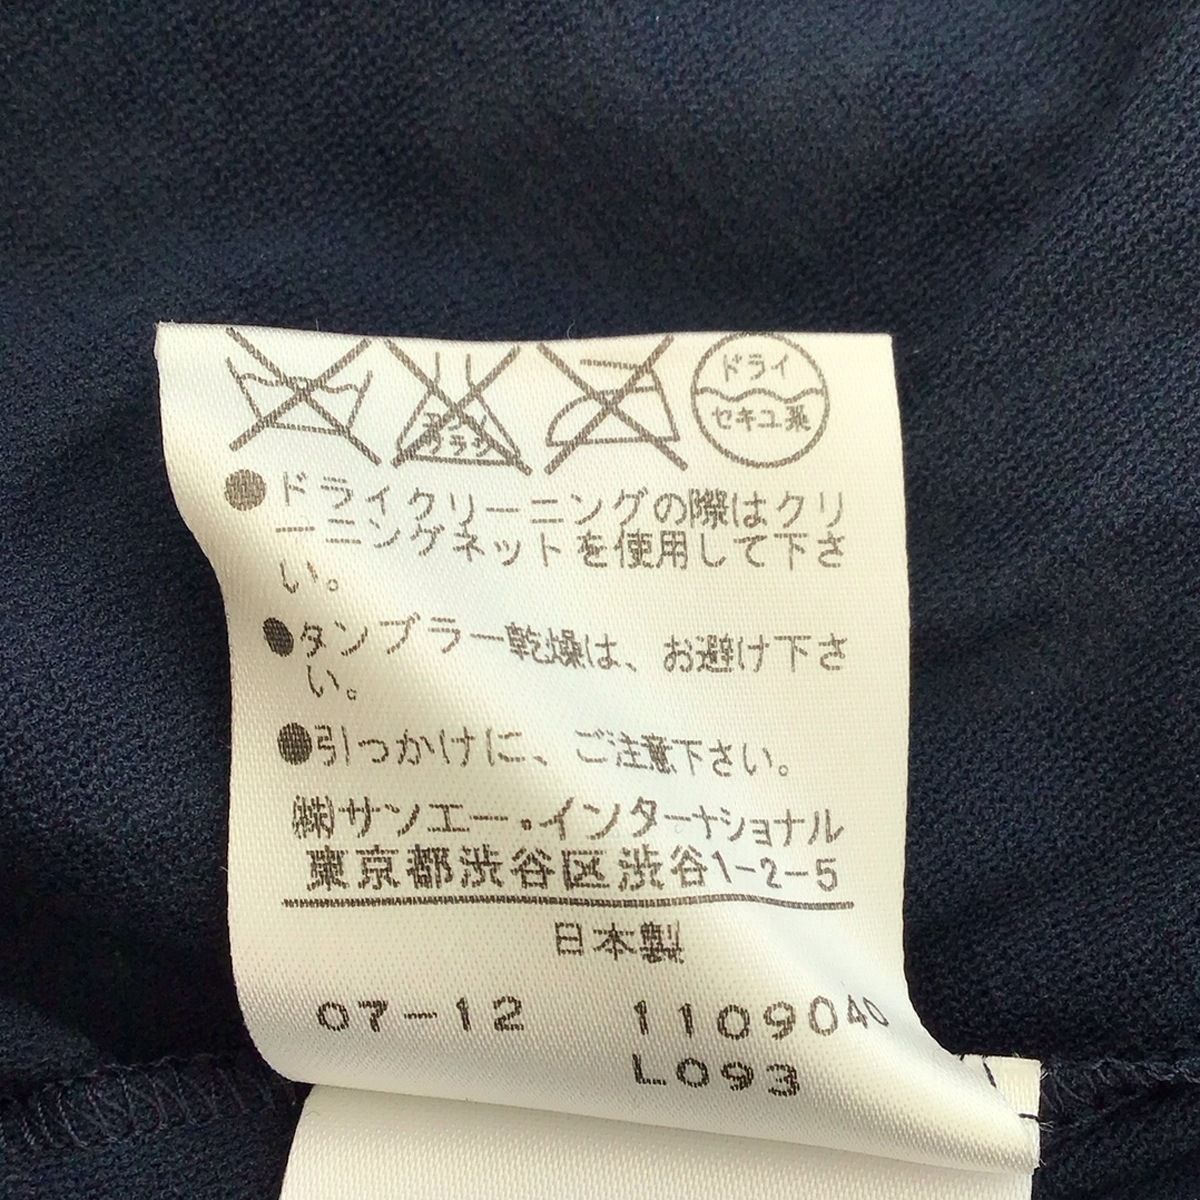 エンソ
サラシ
ドライ
セキユ系
●ドライクリーニングの際はクリ
ーニングネットを使用して下さ
い。
●タンブラー乾燥は、お避け下さ
い。
●引っかけに、ご注意下さい。
(株)サンエー・インターナショナル
東京都渋谷区渋谷1-2-5
日本製
07-12 1109040
L093